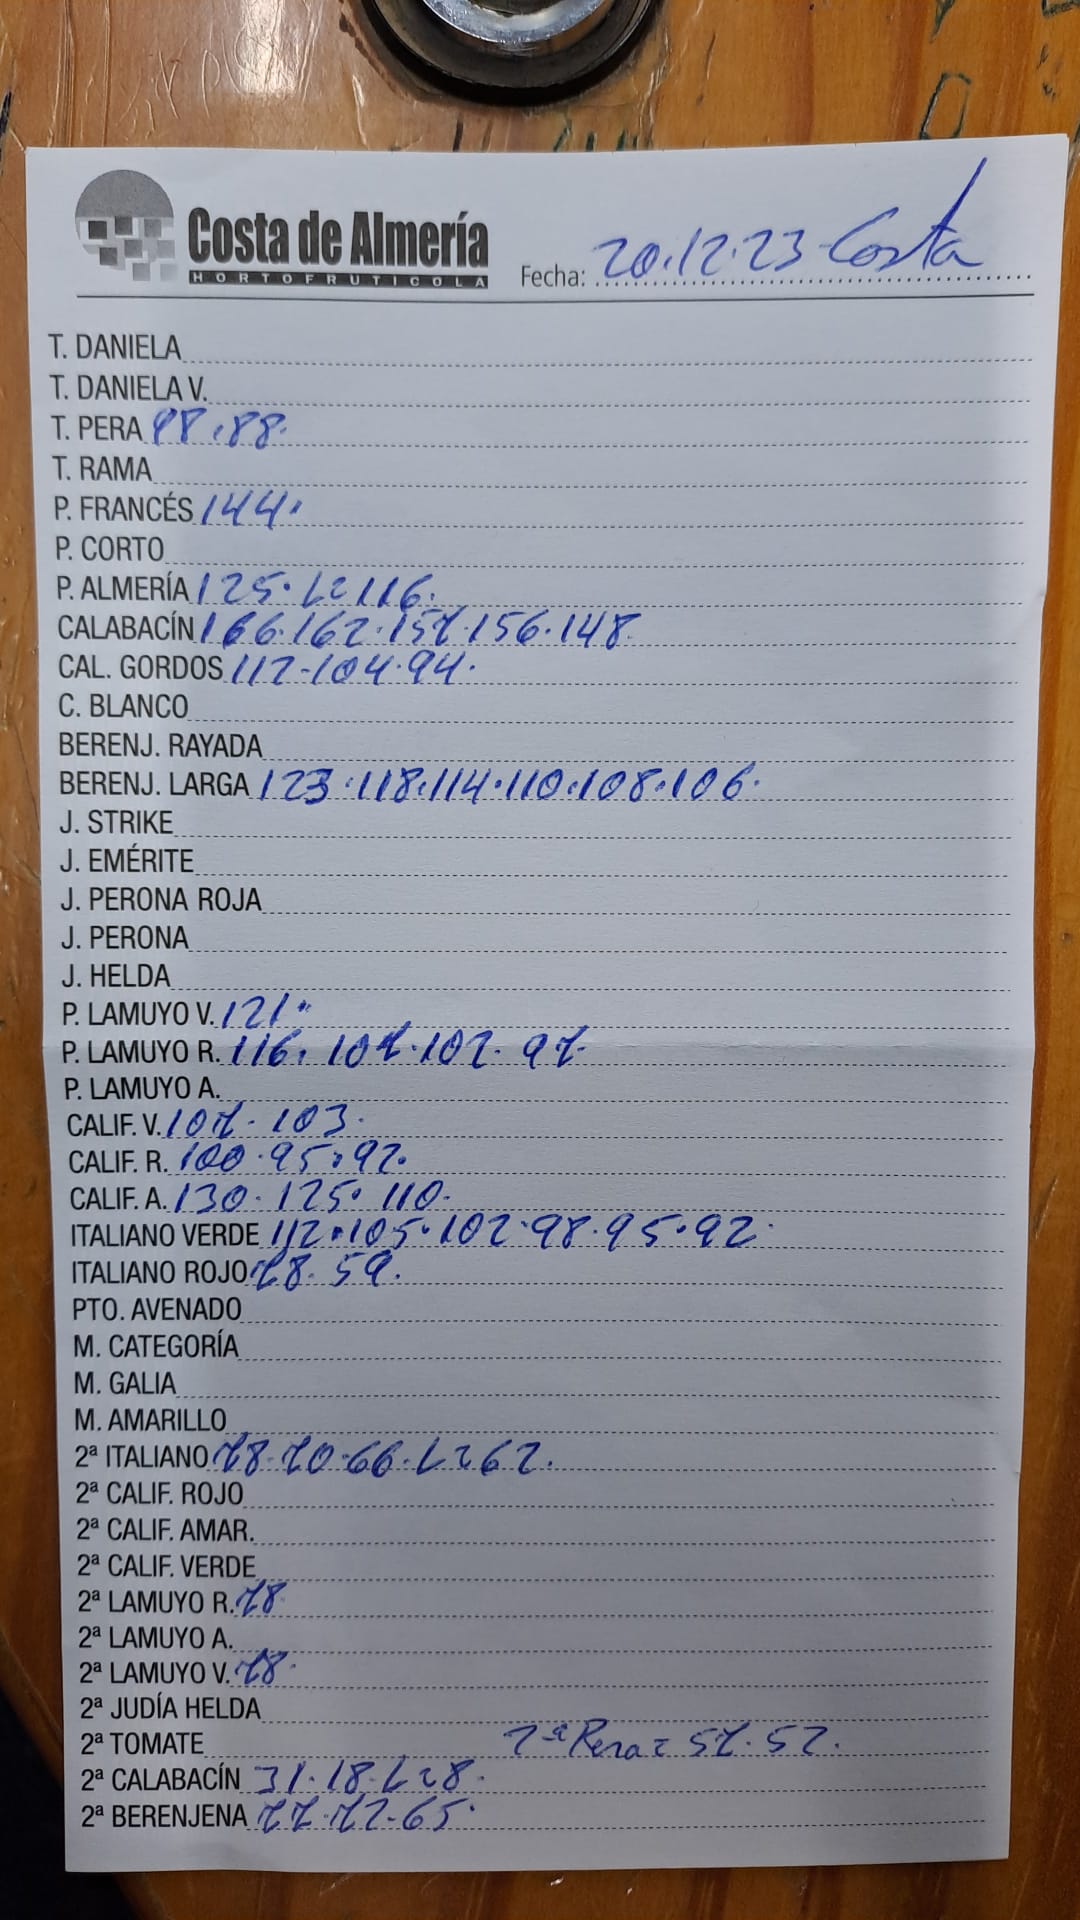 Costa de Almería
HORTOFRUTICOLA
Fecha: 20.12.23 Costa
T. DANIELA
T. DANIELA V.
T. PERA 98.88.
T. RAMA
P. FRANCÉS 144.
P. CORTO
P. ALMERÍA 125. L2 116.
CALABACÍN 166.162.157.156.148.
CAL. GORDOS 112-104.94.
C. BLANCO
BERENJ. RAYADA
BERENJ. LARGA 123.118.114.110.108.106.
J. STRIKE
J. EMÉRITE
J. PERONA ROJA
J. PERONA
J. HELDA
P. LAMUYO V. 121.
P. LAMUYO R. 116. 107.102. 97.
P. LAMUYO A.
CALIF. V. 107. 103.
CALIF. R. 100.95.92.
CALIF. A. 130. 125. 110.
ITALIANO VERDE 112.105.102.98.95.92.
ITALIANO ROJO 78. 59.
PTO. AVENADO
M. CATEGORÍA
M. GALIA
M. AMARILLO
2ª ITALIANO 78.70.66. L2 62.
2ª CALIF. ROJO
2ª CALIF. AMAR.
2ª CALIF. VERDE
2ª LAMUYO R. 78
2ª LAMUYO A.
2ª LAMUYO V. 78.
2ª JUDÍA HELDA
2ª TOMATE 2ª Pera = 57.52.
2ª CALABACÍN 31.18. L2 8.
2ª BERENJENA 77.72.65.